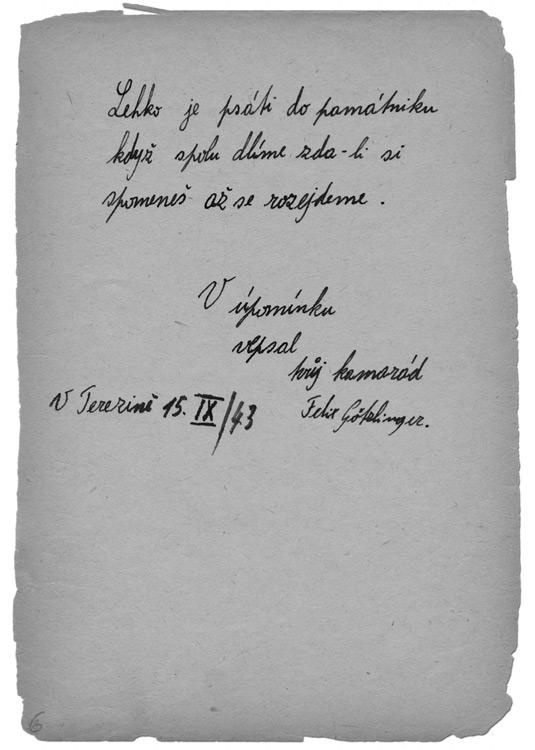 Lehko je psáti do památniku
když spolu dlíme zda-li si
spomeneš až se rozejdeme .
V úpomínku
vepsal
tvůj kamarád
V Terezině 15. IX/43
Felix Götzlinger.
6